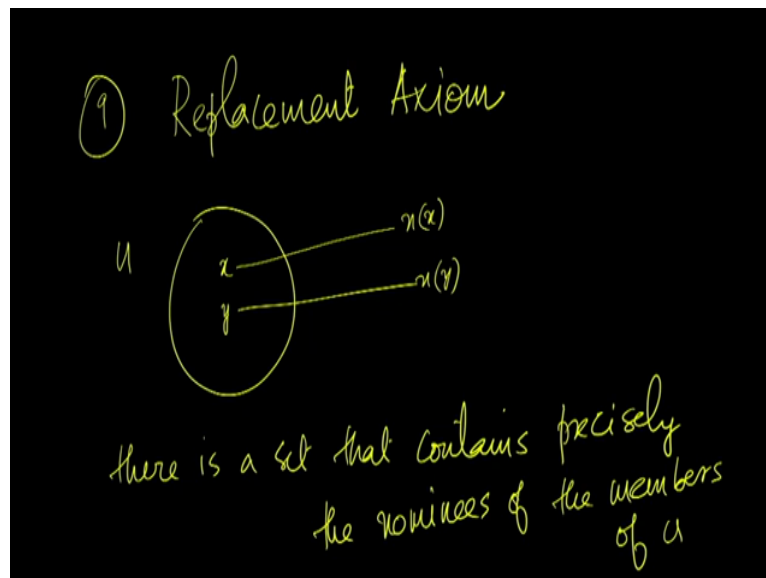 9 Replacement Axiom
u
x n(x)
y n(y)
there is a set that contains precisely
the nominees of the members
of u